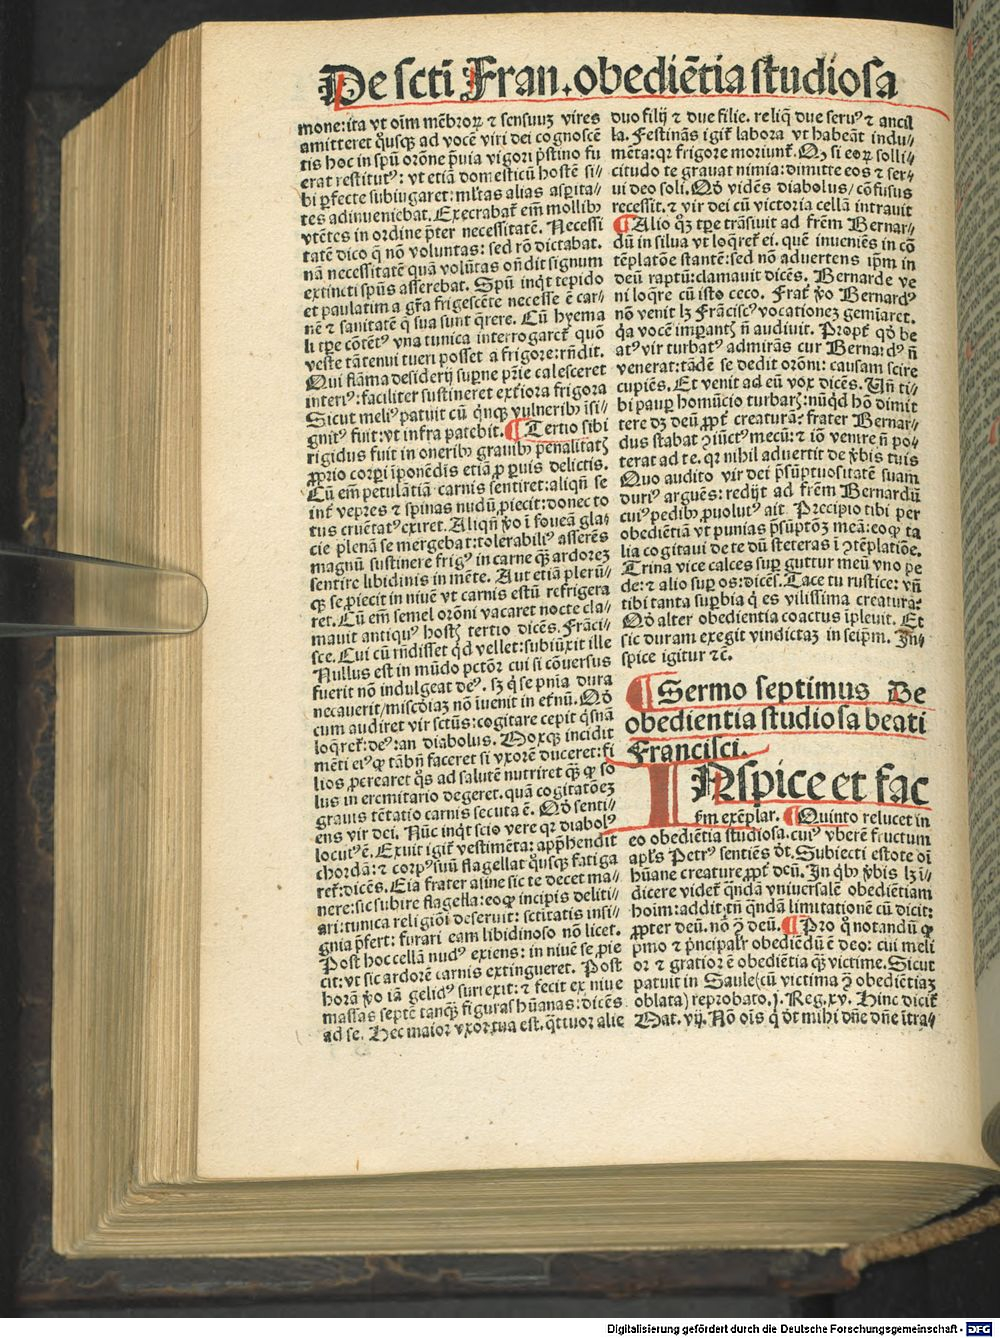 De scti Fran. obediētia studiosa
mone: ita vt oīm mēbroꝝ ⁊ sensuuꝫ vires
amitteret qͦusqꝫ ad vocē viri dei cognoscē
tis hoc in spū orōne p̄uia vigori p̄stino fu
erat restitutꝰ: vt etiā domesticū hostē si//
bi ꝑfecte subiugaret: ml̓tas alias asꝑita//
tes adinueniebat. Execrabat̄ em̄ mollibꝰ
vtētes in ordine p̄ter necessitatē. Necessi
tatē dico q̄ nō voluntas: sed rō dictabat.
nā necessitatē quā volūtas on̄dit signum
extincti spūs asserebat. Spū inq̇t tepido
et paulatim a gr̄a frigescēte necesse ē car//
nē ⁊ sanitatē q̄ sua sunt q̄rere. Cū hyema
li tꝑe cōtētꝰ vna tunica interrogaret̄ quō
veste tā tenui tueri posset a frigore: rn̄dit.
Qui flāma desiderij suꝑne p̄rie calesceret
interiꝰ: faciliter sustineret ext̓iora frigora
Sicut meliꝰ patuit cū qͥnqꝫ vulneribꝰ īsi//
gnitꝰ fuit: vt infra patebit. ¶ Tertio sibi
rigidus fuit in oneribꝰ grauibꝰ penalitatꝫ
ꝓprio corꝑi īponēdis etiā ꝓ ꝑuis delictis.
Cū em̄ petulātiā carnis sentiret: aliqn̄ se
int̓ vepres ⁊ spinas nudū ꝓiecit: donec to
tus cruētatꝰ exiret. Aliqn̄ ṽo ī foueā gla//
cie plenā se mergebat: tolerabiliꝰ asserēs
magnū sustinere frigꝰ in carne qꝫ ardoreꝫ
sentire libidinis in mēte. Aut etiā plerū//
qꝫ se ꝓiecit in niuē vt carnis estū refrigera
ret. Cū em̄ semel orōni vacaret nocte cla//
mauit antiquꝰ hostꝫ tertio dicēs. Frāci//
sce. Cui cū rn̄disset qͥd vellet: subiūxit ille
Nullus est in mūdo pctōr cui si cōuersus
fuerit nō indulgeat deꝰ. sꝫ qͥ se pnīa dura
necauerit/ miscd̓iaꝫ nō īuenit in et̓nū. Qd̓
cum audiret vir sctūs: cogitare cepit qͥsnā
loq̄ret̄: deꝰ: an diabolus. Moxqꝫ incidit
mēti eiꝰ ꝙ tāꝫ bn̄ faceret si vxorē duceret: fi
lios ꝓcrearet qͦs ad salutē nutriret qꝫ ꝙ so
lus in eremitorio degeret. quā cogitatōeꝫ
grauis tētatio carnis secuta ē. Qd̓ senti//
ens vir dei. Nūc inq̇t scio vere qꝛ diabolꝰ
locutꝰ ē. Exuit igit̄ vestimēta: app̄hendit
chordā: ⁊ corpꝰ suū flagellat qͦusqꝫ fatiga
ret̄: dicēs. Eia frater asine sic te decet ma//
nere: sic subire flagella: eoqꝫ incipis deliti//
ari: tunica religiōi deseruit: sctitatis insi//
gnia p̄fert: furari eam libidinoso nō licet.
Post hoc cellā nudꝰ exiens: in niuē se ꝓie
cit: vt sic ardorē carnis extingueret. Post
horā ṽo iā gelidꝰ surrexit: ⁊ fecit ex niue
massas septē tanqꝫ figuras hūanas: dicēs
ad se. Hec maior vxor tua est. qͣtuor alie
duo filij ⁊ due filie. reliqͥ due seruꝰ ⁊ ancil
la. Festināns igit̄ labora vt habeāt indu//
mēta: qꝛ frigore moriunt̄. Qꝫ si eoꝝ solli//
citudo te grauat nimia: dimitte eos ⁊ ser//
ui deo soli. Qd̓ vidēs diabolus/ cōfusus
recessit. ⁊ vir dei cū victoria cellā intrauit
¶ Alio qͦꝫ tꝑe trāsiuit ad frēm Bernar//
dū in silua vt loq̄ret̄ ei. quē inueniēs in cō
tēplatōe stantē: sed nō aduertens ip̄m in
deū raptū: clamauit dicēs. Bernarde ve
ni loq̄re cū isto ceco. Frat̓ ṽo Bernardꝰ
nō venit lꝫ Frāciscꝰ vocationeꝫ gemīaret.
qͣa vocē imꝑantꝫ nō audiuit. Propt̓ qd̓ be
atꝰ vir turbatꝰ admirās cur Bernardꝰ nō
venerat: tādē se dedit orōni: causam scire
cupiēs. Et venit ad eū vox dicēs. Vn̄ ti//
bi pauꝑ homūcio turbarꝫ: nūqͥd hō dimit
tere dꝫ deū ꝓpt̓ creaturā? frater Bernar//
dus stabat ꝯiūctꝰ mecū: ⁊ iō venire nō po//
terat ad te. qꝛ nihil aduertit de ṽbis tuis
Quo audito vir dei p̄sūptuositatē suam
durꝰ arguēs: redijt ad frēm Bernardū
cuiꝰ pedibꝰ ꝓuolutꝰ ait. Precipio tibi per
obediētiā vt punias p̄sūptōꝫ meā: eoqꝫ ta
lia cogitaui de te dū steteras ī ꝯtēplatiōe.
Trina vice calces suꝑ guttur meū vno pe
de: ⁊ alio suꝑ os: dicēs. Tace tu rustice: vn̄
tibi tanta suꝑbia qͥ es vilissima creatura?
Qd̓ alter obedientia coactus īpleuit. Et
sic duram exegit vindictaꝫ in seip̄m. In//
spice igitur ⁊c̄.
¶ Sermo septimus De
obedientia studiosa beati
Francisci.
INspice et fac
sm̄ exēplar. ¶ Quinto relucet in
eo obediētia studiosa. cuiꝰ vberē fructum
apl̓s Petrꝰ sentiēs d̓t. Subiecti estote oī
hūane creature ꝓpt̓ deū. In qͥbꝰ ṽbis lꝫ ī//
dicere videt̄ qͣndā vniuersalē obediētiam
hoīm: addit tn̄ qͣndā limitationē cū dicit:
ꝓpter deū. nō ꝯ̄ deū. ¶ Pro qͦ notandū ꝙ
pͥmo ⁊ pͥncipalr̄ obediēdū ē deo: cui meli
or ⁊ gratior ē obediētia qꝫ victime. Sicut
patuit in Saule (cū victima ꝯ̄ obediētiaꝫ
oblata) reprobato. j. Reg. xv. Hinc dicit̄
Mat. vij. Nō oīs qͥ d̓t mihi dn̄e dn̄e ītra//
Digitalisierung gefördert durch die Deutsche Forschungsgemeinschaft - DFG